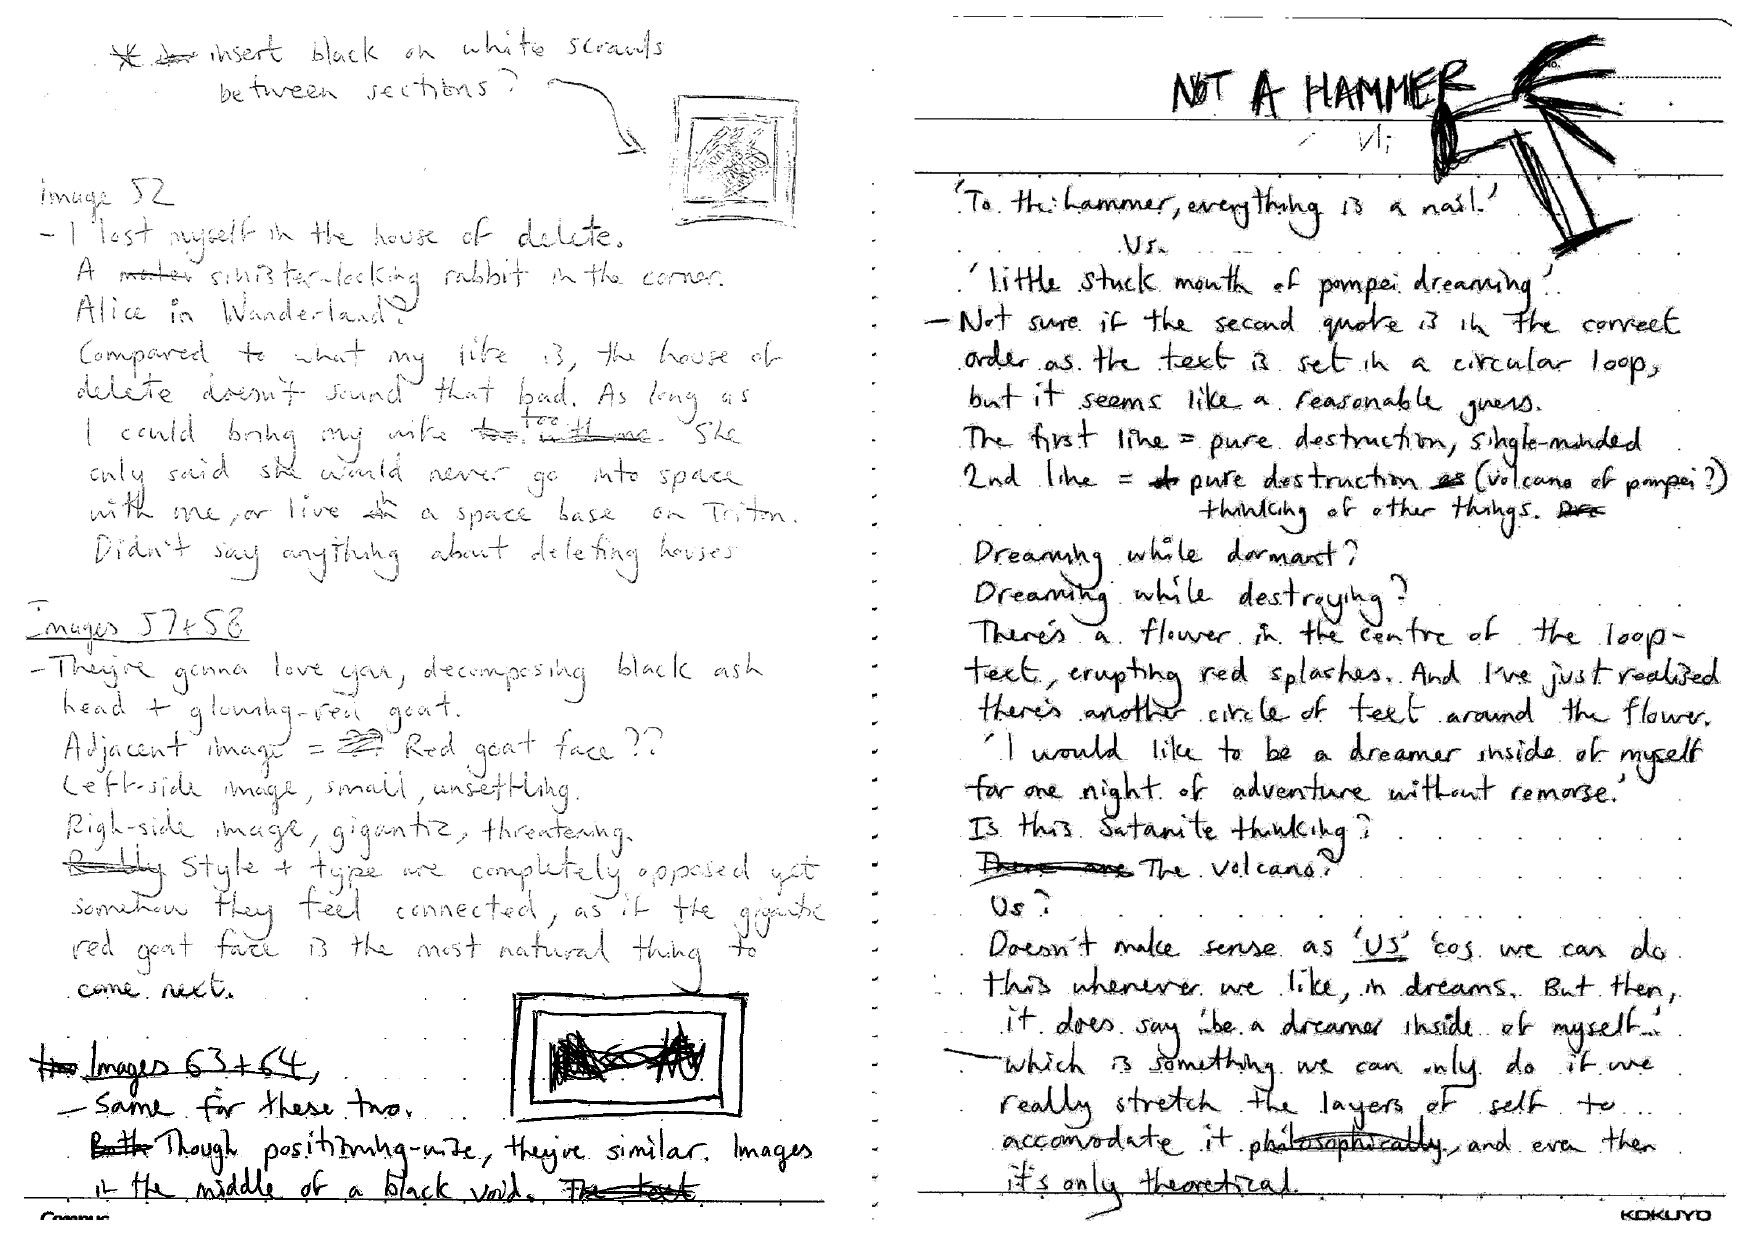 insert black on white scrawls
between sections?
image 52
- I lost myself in the house of delete.
A sinister-looking rabbit in the corner.
Alice in Wanderland?
Compared to what my life is, the house of
delete doesn't sound that bad. As long as
I could bring my wife too. She
only said she would never go into space
with me, or live in a space base on Triton.
Didn't say anything about deleting houses
Images 57+58
- They're gonna love you, decomposing black ash
head + glowing-red goat.
Adjacent image = Red goat face??
Left-side image, small, unsettling.
Righ-side image, gigantic, threatening.
Really Style + type are completely opposed yet
somehow they feel connected, as if the gigantic
red goat face is the most natural thing to
come next.
Images 63+64,
- Same for these two.
Both Though positioning-wize, they're similar. Images
in the middle of a black void. The text
Campus
NOT A HAMMER
'To the hammer, everything is a nail.'
Vs.
'little stuck mouth of pompei dreaming'
- Not sure if the second quote is in the correct
order as the text is set in a circular loop,
but it seems like a reasonable guess.
The first line = pure destruction, single-minded
2nd line = pure destruction as (volcano of pompei?)
thinking of other things.
Dreaming while dormant?
Dreaming while destroying?
There's a flower in the centre of the loop-
text, erupting red splashes. And I've just realised
there's another circle of text around the flower.
'I would like to be a dreamer inside of myself
for one night of adventure without remorse.'
Is this Satanite thinking?
There are The volcano?
Us?
Doesn't make sense as 'US' 'cos we can do
this whenever we like, in dreams. But then,
it does say 'be a dreamer inside of myself...'
- which is something we can only do if we
really stretch the layers of self to
accomodate it philosophically, and even then
it's only theoretical.
KOKUYO